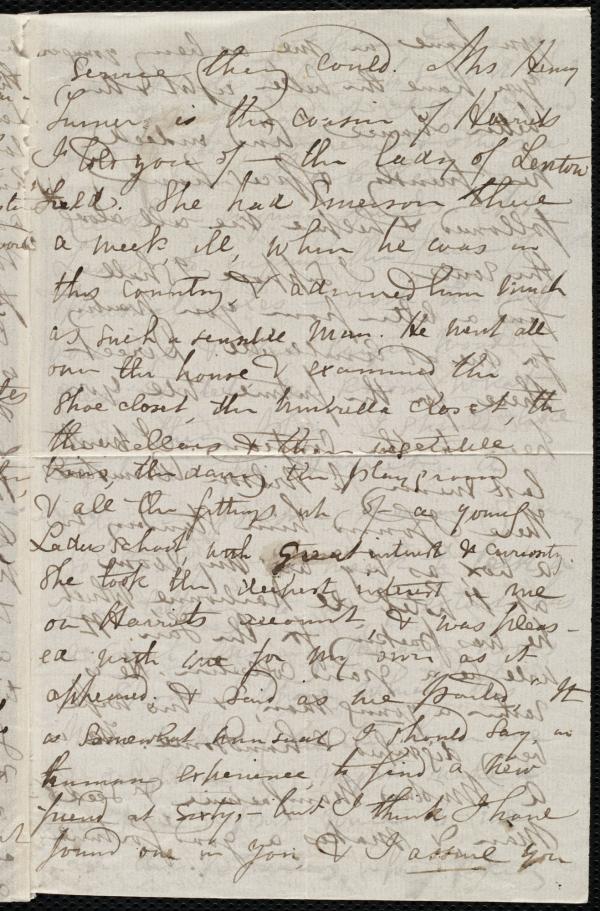 Service they could. Mrs Henry
Turner is the cousin of Harriets
I told you of – the lady of Lenton
field. She had Emerson there
a week, ill, when he was in
this country, & admired him much
as such a sensible man. He went all
over the house & examined the
Shoe closet, the umbrella closet, the
the cellars & their vegetable
bins the dairy, the play ground
& all the fittings up of a young
Ladies School, with great interest & curiosity.
She took the deepest interest in me
on Harriets account, & was pleas-
ed with me for my own as it
appeared. & said as we parted, "It
is somewhat unusual I should say in
human experience, to find a new
friend at sixty, – but I think I have
found one in you, & I assure you